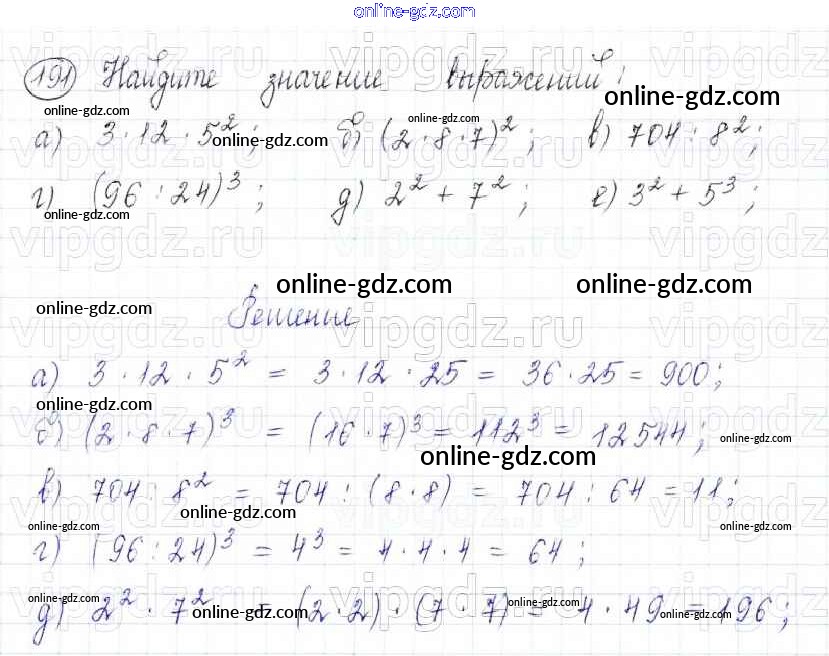 online-gdz.com
191 Найдите значение выражений:
online-gdz.com online-gdz.com online-gdz.com
а) 3 · 12 · 5²; б) (2 · 8 · 7)²; в) 704 : 8²;
online-gdz.com online-gdz.com
г) (96 : 24)³; д) 2² + 7²; е) 3² + 5³;
online-gdz.com online-gdz.com
online-gdz.com online-gdz.com
online-gdz.com
Решение
а) 3 · 12 · 5² = 3 · 12 · 25 = 36 · 25 = 900;
online-gdz.com
б) (2 · 8 · 7)³ = (16 · 7)³ = 112³ = 12544;
online-gdz.com online-gdz.com
в) 704 : 8² = 704 : (8 · 8) = 704 : 64 = 11;
online-gdz.com online-gdz.com online-gdz.com
г) (96 : 24)³ = 4³ = 4 · 4 · 4 = 64;
online-gdz.com online-gdz.com online-gdz.com online-gdz.com
д) 2² · 7² = (2 · 2) · (7 · 7) = 4 · 49 = 196;
vipgdz.ru vipgdz.ru vipgdz.ru